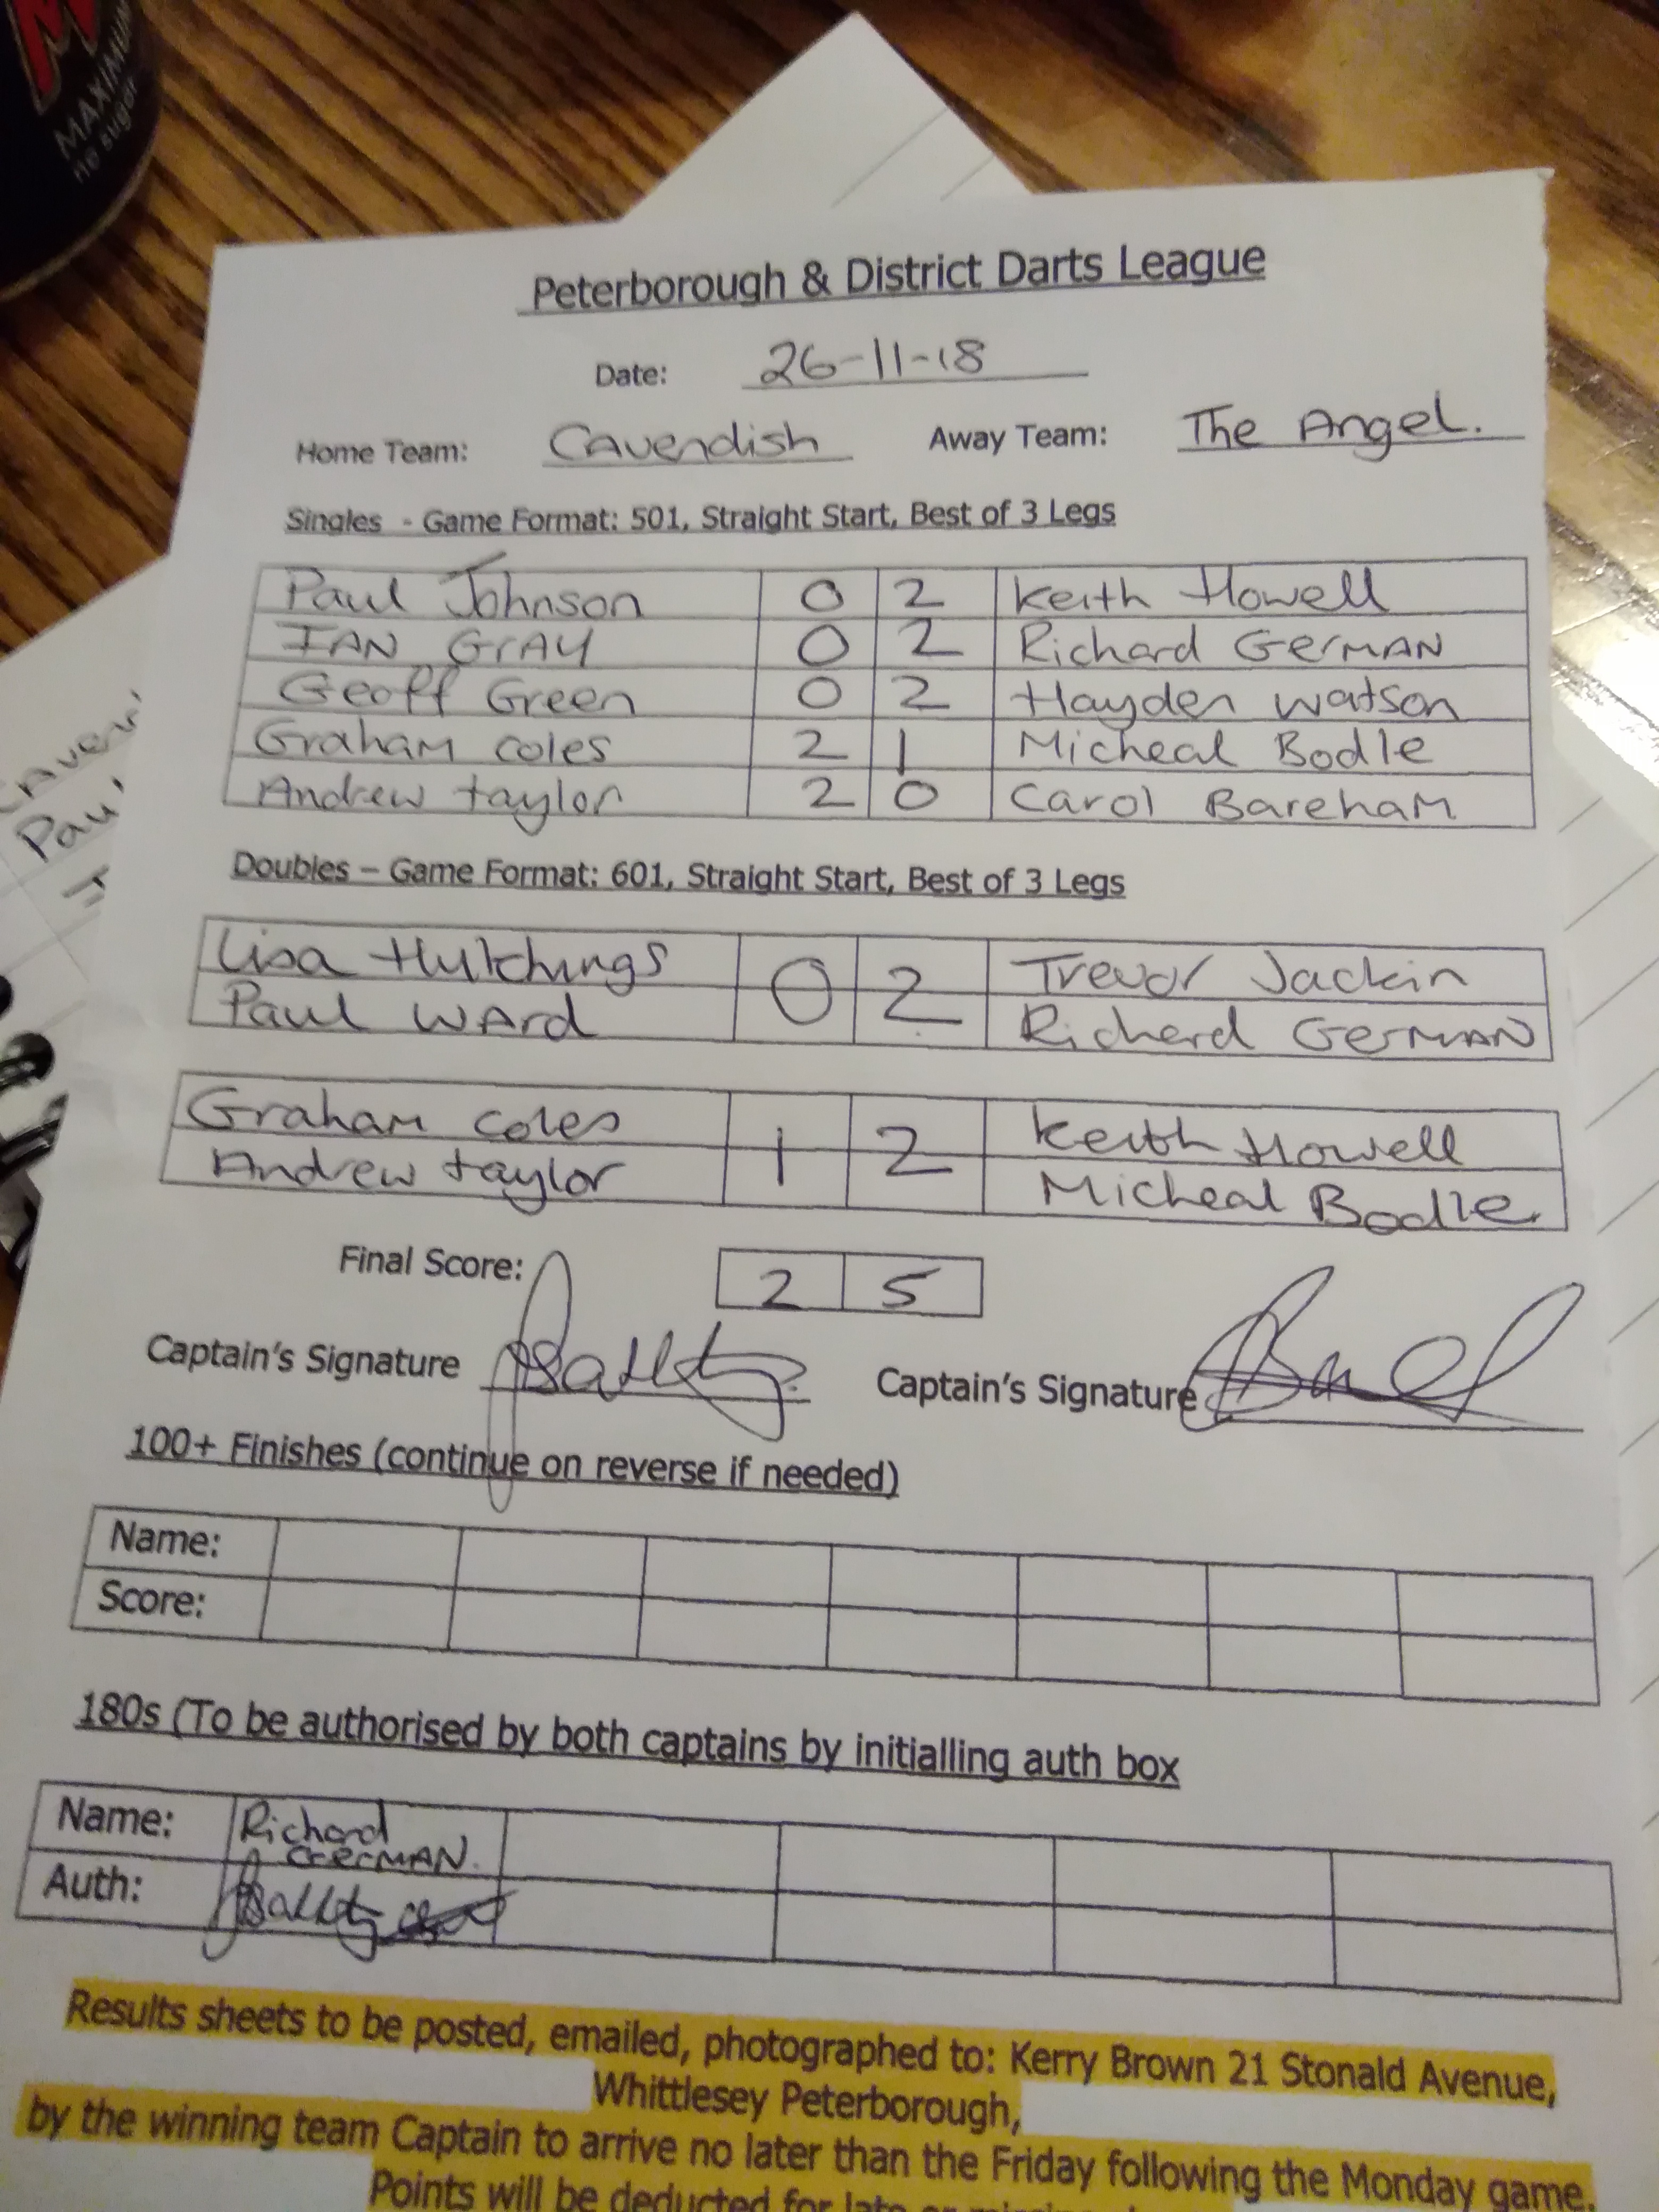 MAXIMUM
no sugar
Peterborough & District Darts League
Date: 26-11-18
Home Team: Cavendish Away Team: The Angel.
Singles - Game Format: 501, Straight Start, Best of 3 Legs
Paul Johnson 0 2 Keith Howell
IAN GRAY 0 2 Richard GerMAN
Geoff Green 0 2 Hayden Watson
Graham coles 2 1 Micheal Bodle
Andrew taylor 2 0 Carol BarehaM
Doubles – Game Format: 601, Straight Start, Best of 3 Legs
Lisa Hutchings 0 2 Trevor Jackin
Paul WArd Richard GerMAN
Graham coles 1 2 Keith Howell
Andrew taylor Micheal Bodle.
Final Score: 2 5
Captain's Signature Captain's Signature
100+ Finishes (continue on reverse if needed)
Name:
Score:
180s (To be authorised by both captains by initialling auth box
Name: Richard
GerMAN.
Auth:
Results sheets to be posted, emailed, photographed to: Kerry Brown 21 Stonald Avenue,
Whittlesey Peterborough,
by the winning team Captain to arrive no later than the Friday following the Monday game.
Points will be deducted for late or